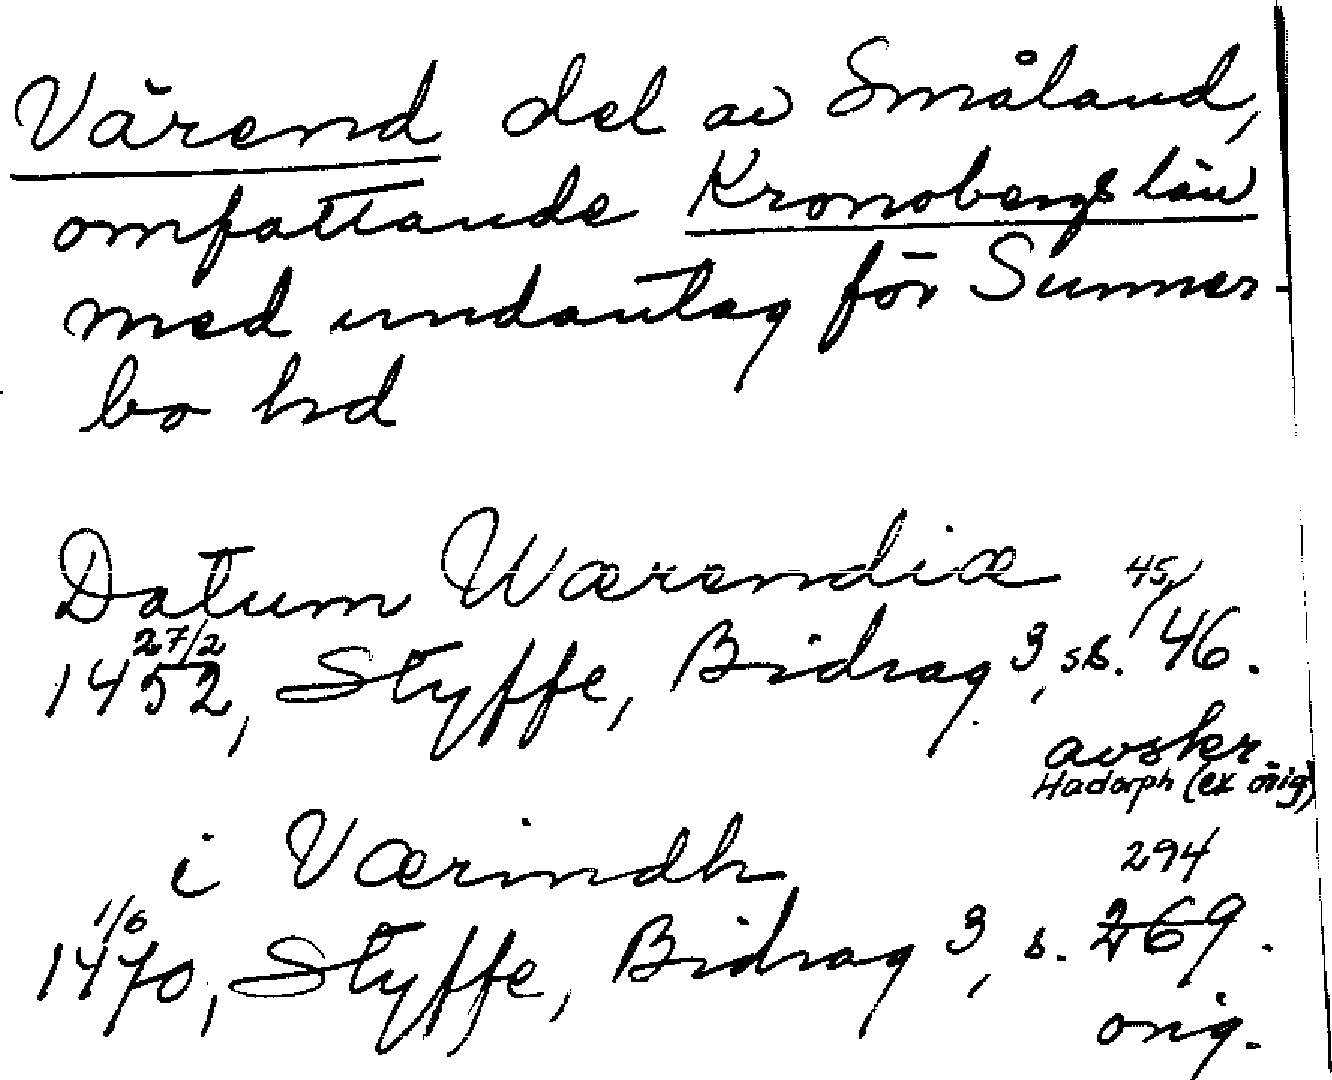 Värend del av Småland,
omfattande Kronobergs län
med undantag för Sunner-
bo hd
Datum Wærendiæ 45/
27/2
1452, Styffe, Bidrag 3, ss. 46.
avskr.
Hadorph (ex orig)
iVærindh 294
1/6
1470, Styffe, Bidrag 3, s. 269.
orig.